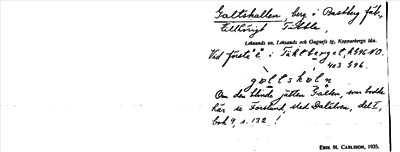 Galtskallen, berg i Bastberg fäb.,
tillhörigt Tibble,
Leksands sn, Leksands och Gagnefs tg, Kopparbergs län.
Vid första i Täktberget, NO.
403 S96.
galtskåln
Om den blinde jätten Bålen, som bodde
här se Forslund, Med Dalälven, del I,
bok 9, s. 132 !
ERIK M. CARLSSON, 1935.